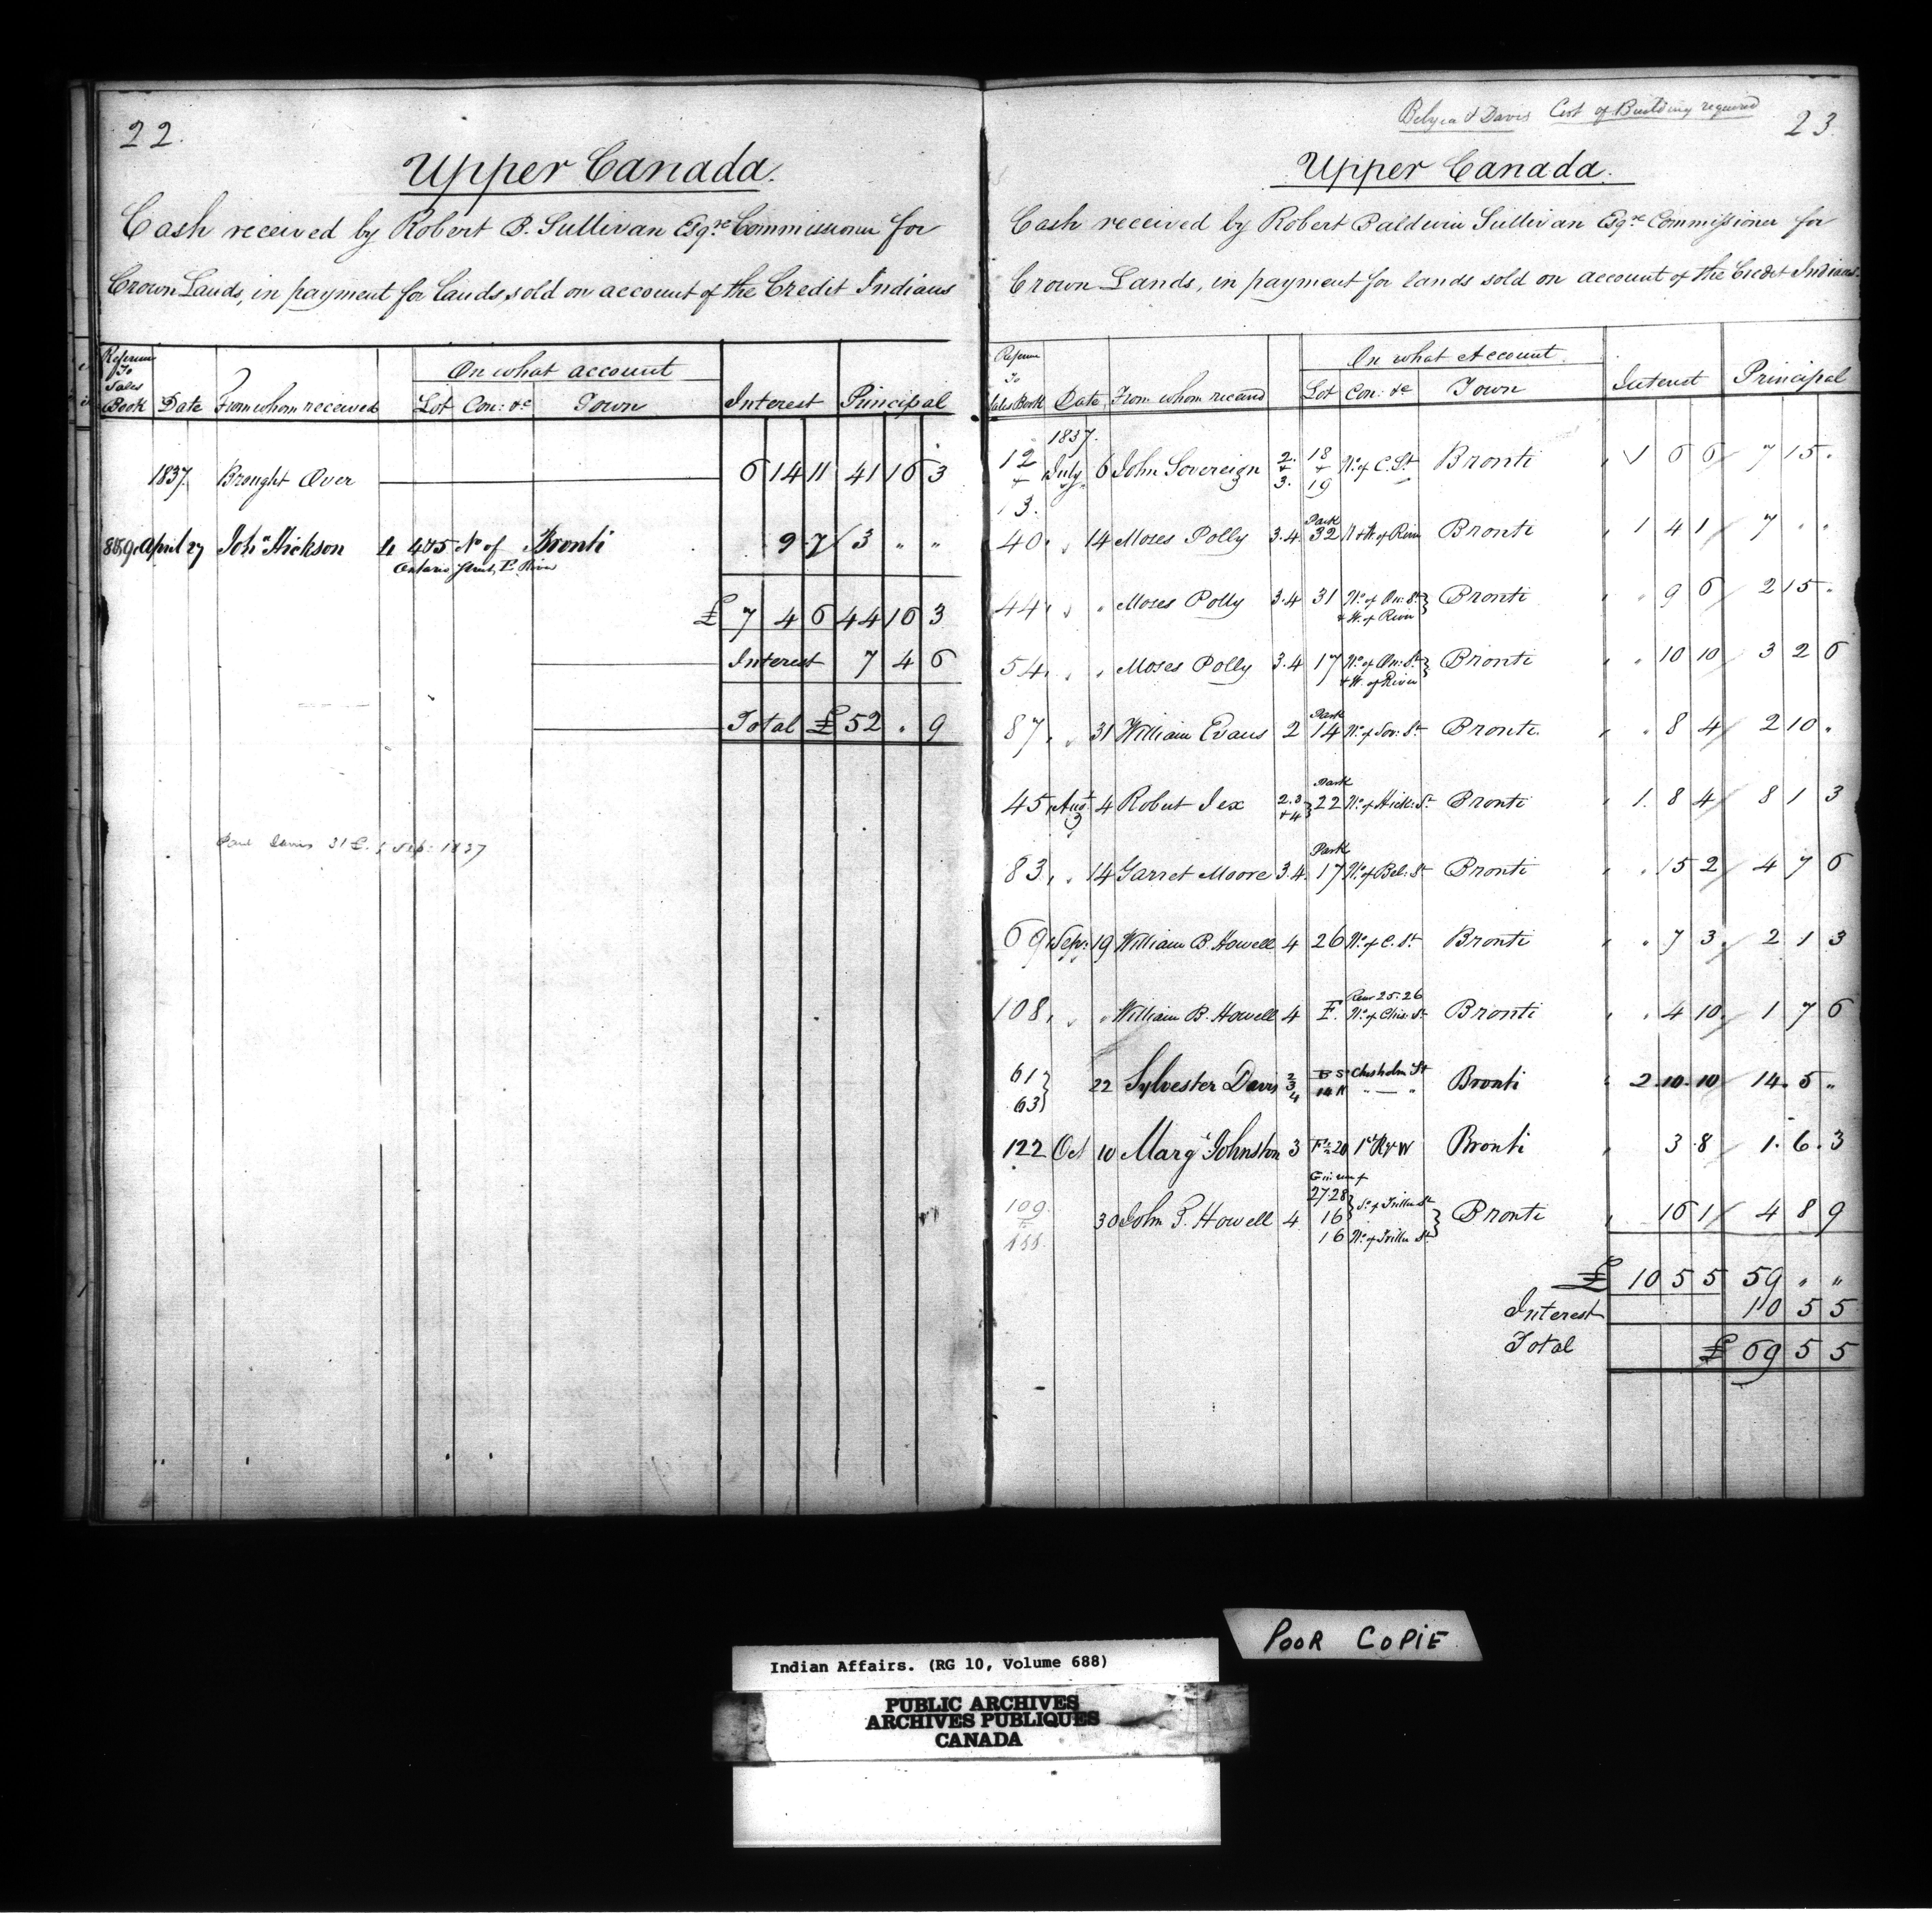 22.
Upper Canada.
Cash received by Robert B. Sullivan Esqre Commissioner for
Crown Lands, in payment for lands sold on account of the Credit Indians
Reference To Sales Book Date From whom received On what account Lot Con: &c Town Interest Principal
1837. Brought Over 6 14 11 41 16 3
April 27 John Hickson 4&5 No of Bronti 9 7 3 " "
Ontario Street, E. River
£ 7 4 6 44 16 3
Interest 7 4 6
Total £ 52 " 9
Sep: 1837
Belyea & Davis Cost of Building required
23.
Upper Canada.
Cash received by Robert Baldwin Sullivan Esqre Commissioner for
Crown Lands, in payment for lands sold on account of the Credit Indians
Reference To Sales Book Date From whom received On what Account Lot Con: &c Town Interest Principal
1837.
12 + 13. July 6 John Sovereign 2. + 3. 18 + 19 No. of C. St Bronti 1 6 6 7 15 "
40. " 14 Moses Polly 3.4 Park 32 W. of River Bronti 1 4 1 7 " "
44. " " Moses Polly 3.4 31 No. of On: St + W. of River Bronti " 9 6 2 15 "
54. " " Moses Polly 3.4 17 No. of On: St + W. of River Bronti " 10 10 3 2 6
87. " 31 William Evans 2 Park 14 No. of Sov: St Bronti. " 8 4 2 10 "
45. Augt 4 Robert Jex 2.3 + 4 Park 22 No. of Hick: St Bronti 1. 8 4 8 1 3
83. " 14 Garret Moore 3.4. Park 17 No. of Bel: St Bronti " 15 2 4 7 6
69. Sepr. 19 William B. Howell 4 26 No. of C. St Bronti " 7 3 2 1 3
108. " " William B. Howell 4 F. Rear 25.26 No. of Chis: St Bronti " 4 10 1 7 6
61 63 22 Sylvester Davis 2 3 4 B S Chisholm St 14 N " — " Bronti 2. 10. 10 14. 5 "
122 Oct 10 Margt Johnston 3 20 Bronti 3. 8 1. 6. 3
109. to 30 John P. Howell 4 27.28 16 So. of Triller St 16 No. of Triller St Bronti 16 1 4 8 9
£ 10 5 5 59 " "
Interest 10 5 5
Total £ 69 5 5
POOR COPIE
Indian Affairs. (RG 10, Volume 688)
PUBLIC ARCHIVES
ARCHIVES PUBLIQUES
CANADA